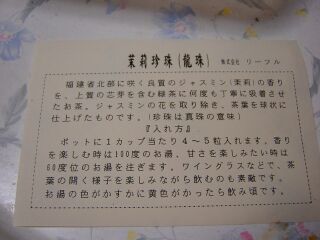 茉莉珍珠(龍珠) 株式会社 リーフル
福建省北部に咲く良質のジャスミン(茉莉)の香り
を、上質の芯芽を含む緑茶に何度も丁寧に吸着させ
たお茶。ジャスミンの花を取り除き、茶葉を球状に
仕上げたものです。(珍珠は真珠の意味)
『入れ方』
ポットに1カップ当たり4～5粒入れます。香り
を楽しむ時は100度のお湯、甘さを楽しみたい時は
60度位のお湯を注ぎます。ワイングラスなどで、茶
葉の開く様子を楽しみながら飲むのも素敵です。
お湯の色がかすかに黄色がかったら飲み頃です。